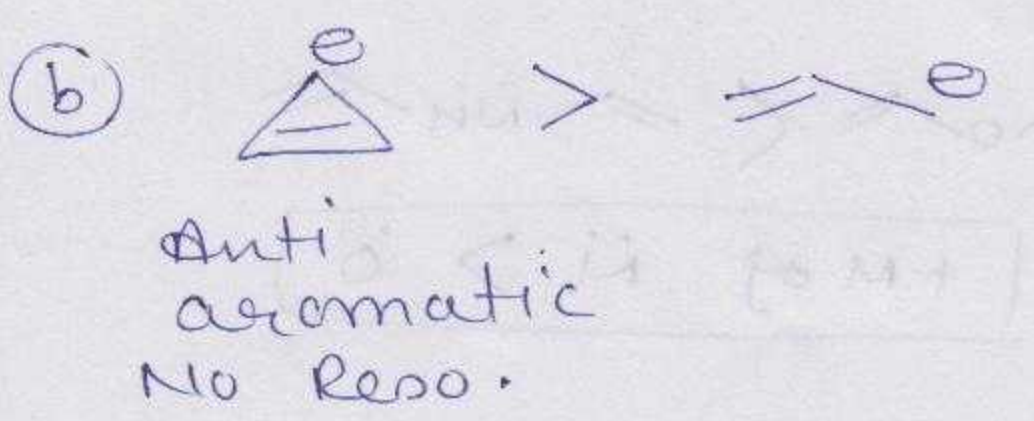 b ⊖ > ⊖
Anti
aromatic
No Reso.